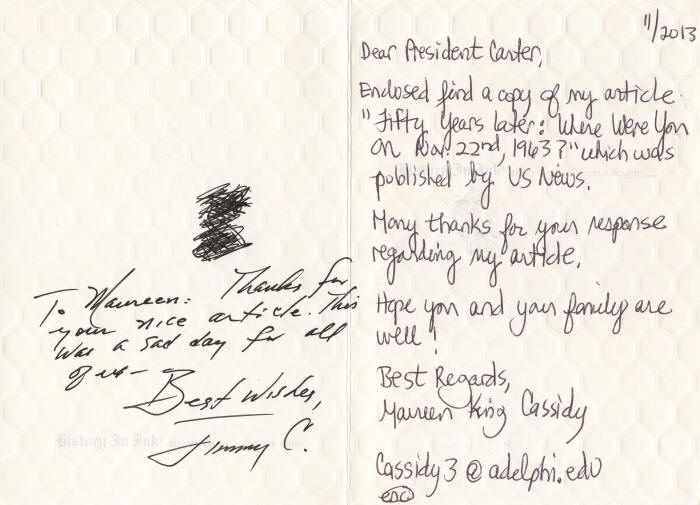 To Maureen: Thanks for
your nice article. This
was a sad day for all
of us -
Best Wishes,
Jimmy C.
History In Ink
11/2013
Dear President Carter,
Enclosed find a copy of my article
"Fifty Years later: Where Were You
on Nov. 22nd, 1963?" which was
published by US News.
Many thanks for your response
regarding my article.
Hope you and your family are
well!
Best Regards,
Maureen King Cassidy
Cassidy3@adelphi.edu
enc